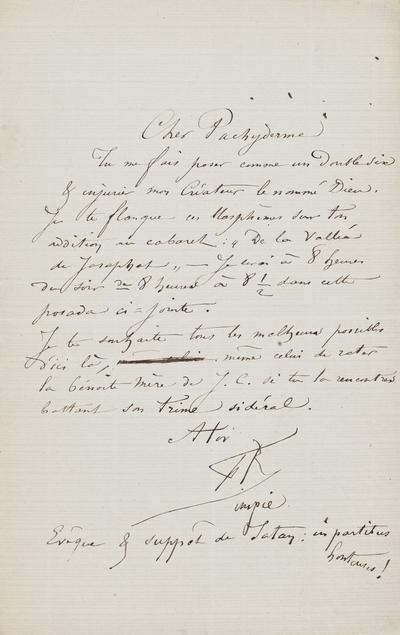 Cher Pachyderme
Tu me fais poser comme un double six
& injurier mon Créateur le nommé Dieu.
Je te flanque ces blasphèmes sur ton
addition au cabaret : " De la Vallée
de Josaphat " — Je serai à 8 heures
du soir de 8 heures à 8 1/2 dans cette
posada ci=jointe.
Je te souhaite tous les malheurs possibles
d'ici là, même celui de rater
la bénoite Mère de J. C. si tu la rencontres
battant son trime sidéral.
A toi
FR
impie
Evêque & suppôt de Satan : in partibus
honteuses !